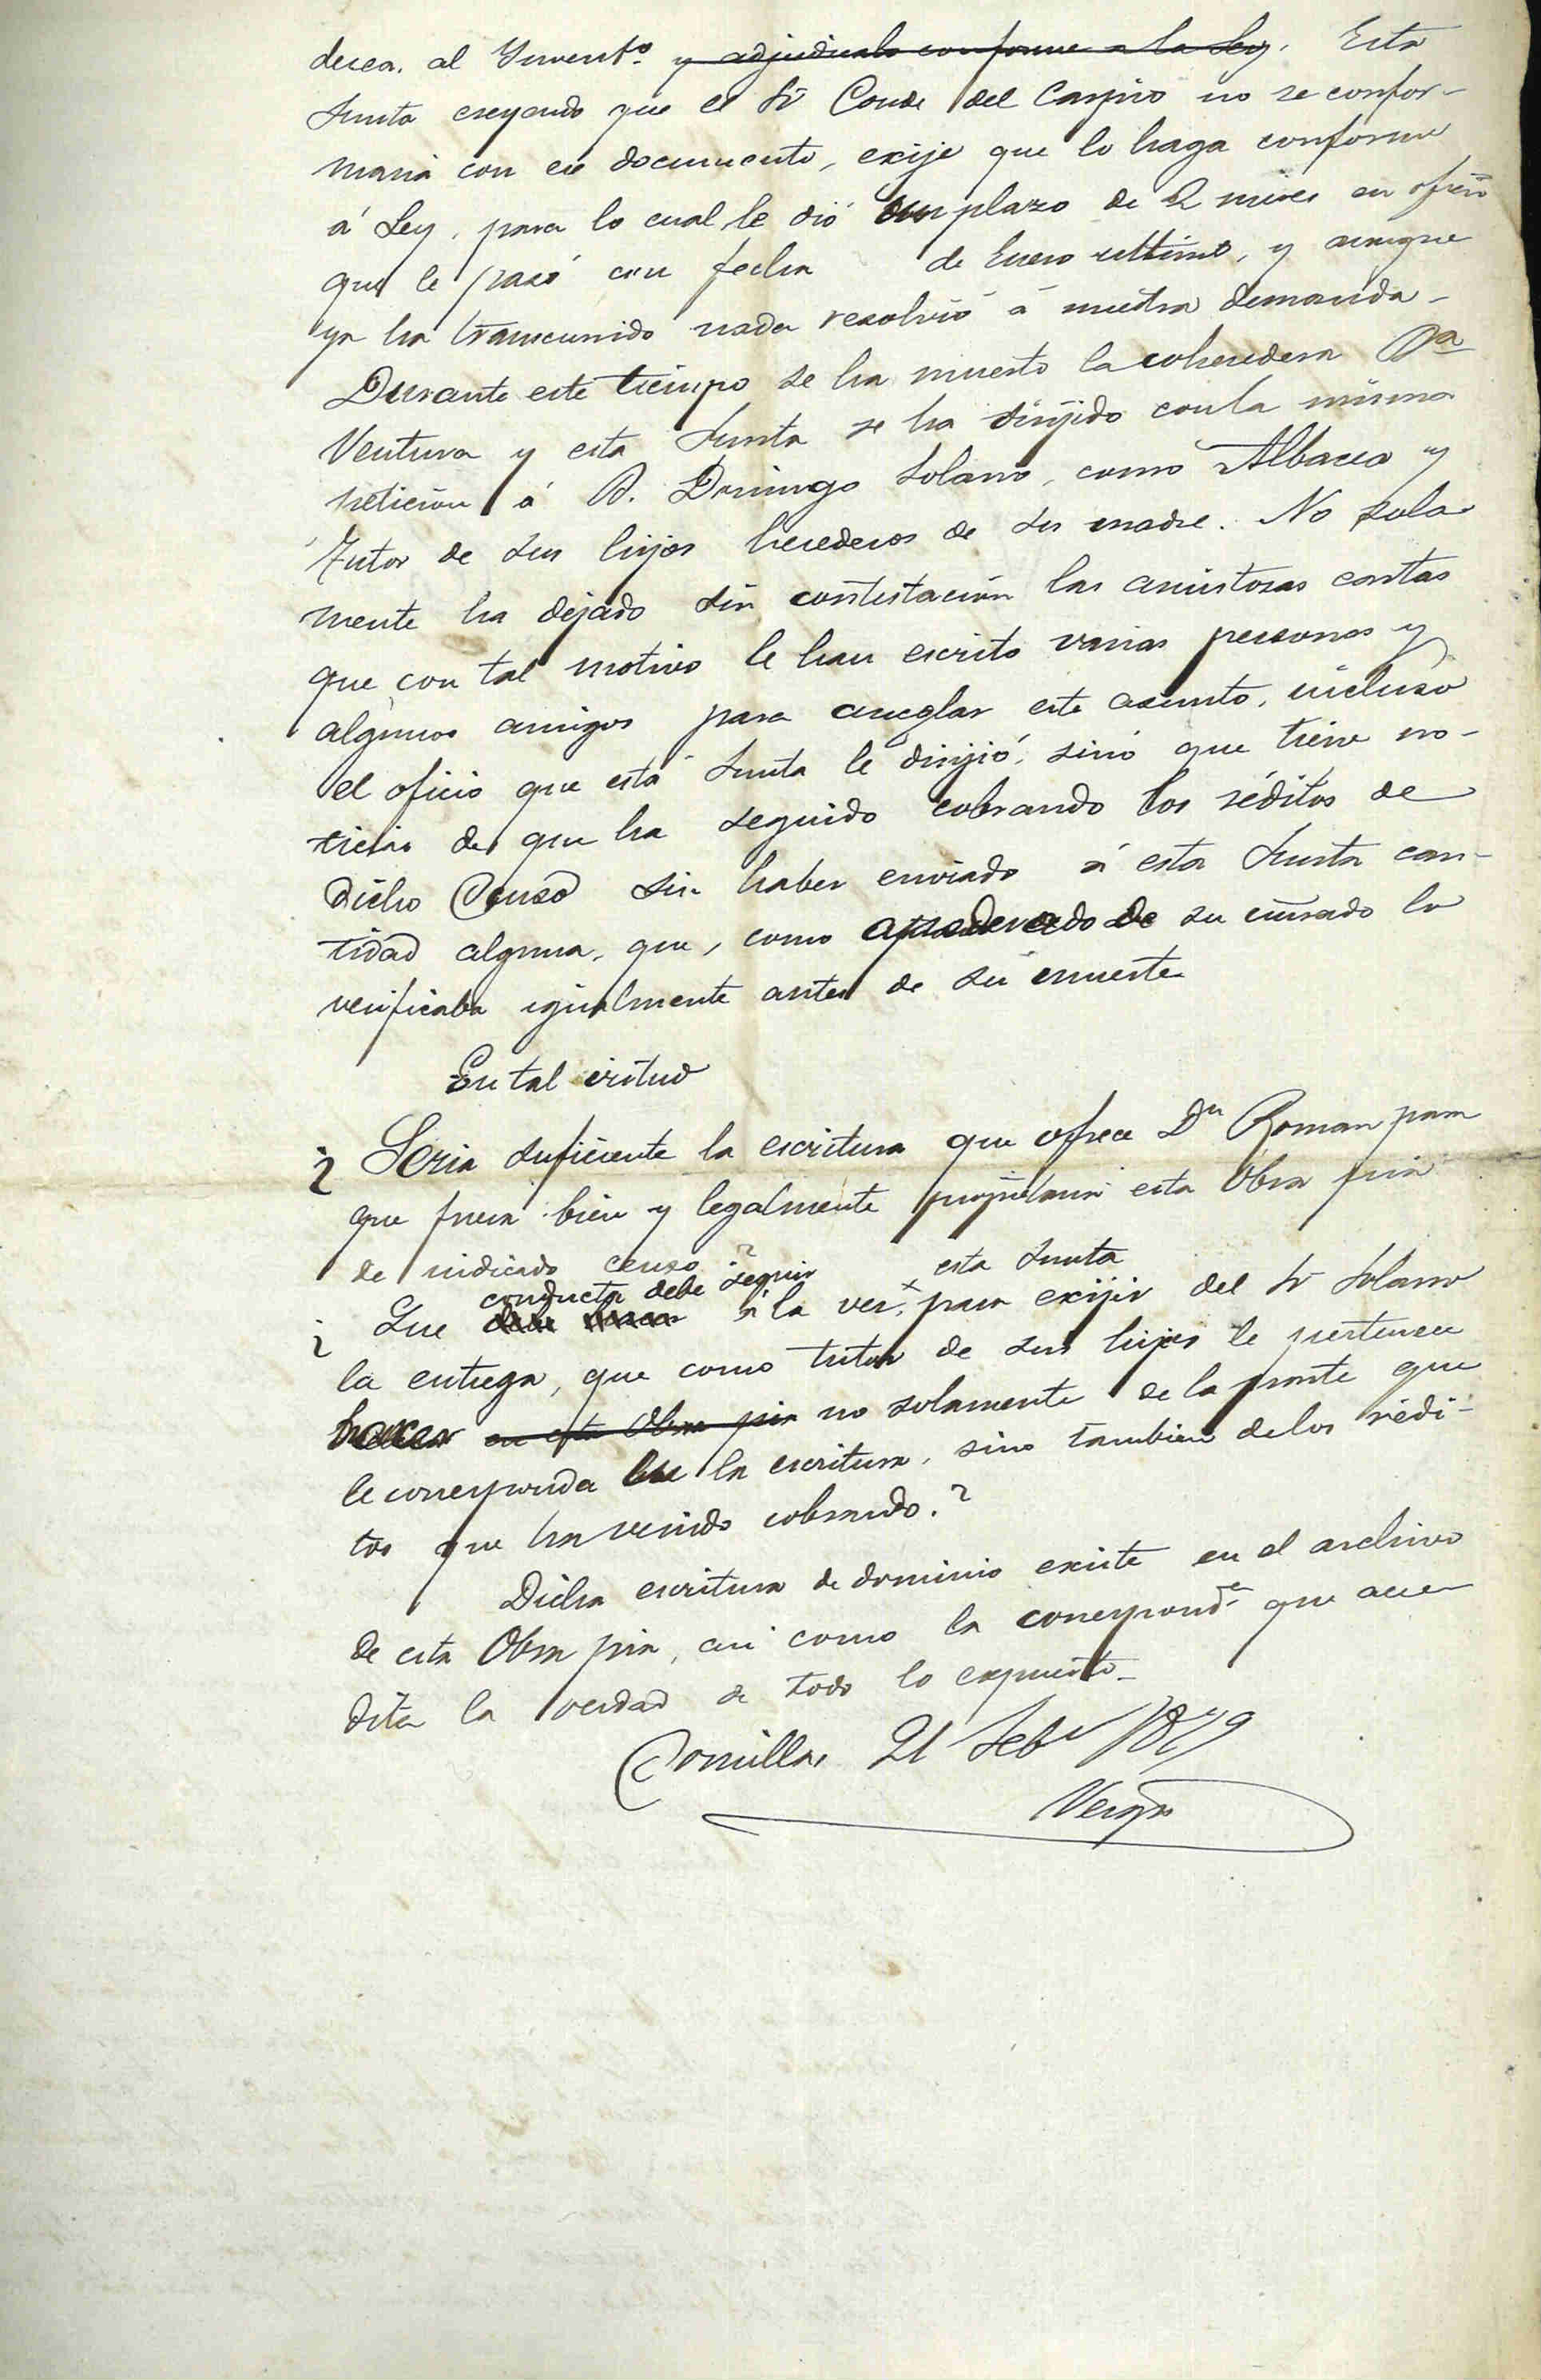 desea. al Invent.º y adjudicalo conforme a la Ley. Esta
Junta creyendo que el Sr Conde del Carpio no se confor-
maria con ese documento, exije que lo haga conforme
á Ley, para lo cual le dió un plazo de 2 meses en oficio
que le pasó con fecha de Enero ultimo, y aunque
ya ha transcurrido nada resolvió á nuestra demanda-
Durante este tiempo se ha muerto la coheredera Dª
Ventura y esta Junta se ha dirijido con la misma
peticion á D. Domingo Solano, como Albacea y
Tutor de sus hijos herederos de su madre. No sola-
mente ha dejado sin contestación las amistosas cartas
que con tal motivo le han escrito varias personas y
algunos amigos para arreglar este asunto, incluso
el oficio que esta Junta le dirijió, sinó que tiene no-
ticias de que ha seguido cobrando los réditos de
dicho Censo sin haber enviado á esta Junta can-
tidad alguna, que, como apoderado de su cuñado lo
verificaba igualmente antes de su muerte
En tal virtud
¿ Seria suficiente la escritura que ofrece Dn Roman para
que fuera bien y legalmente propietaria esta Obra pia
de indicado censo ?
conducta debe seguir esta Junta
¿ Que debe á la vez, para exijir del Sr Solano
la entrega, que como tutor de sus hijos le pertenece
hacer en esta Obra pia no solamente de la parte que
le corresponda la escritura, sino tambien de los rédi-
tos que ha venido cobrando.?
Dicha escritura de dominio existe en el archivo
de esta Obra pia, asi como la correspondª que acre-
dita la verdad de todo lo expuesto-
Comillas 21 Febº 1879